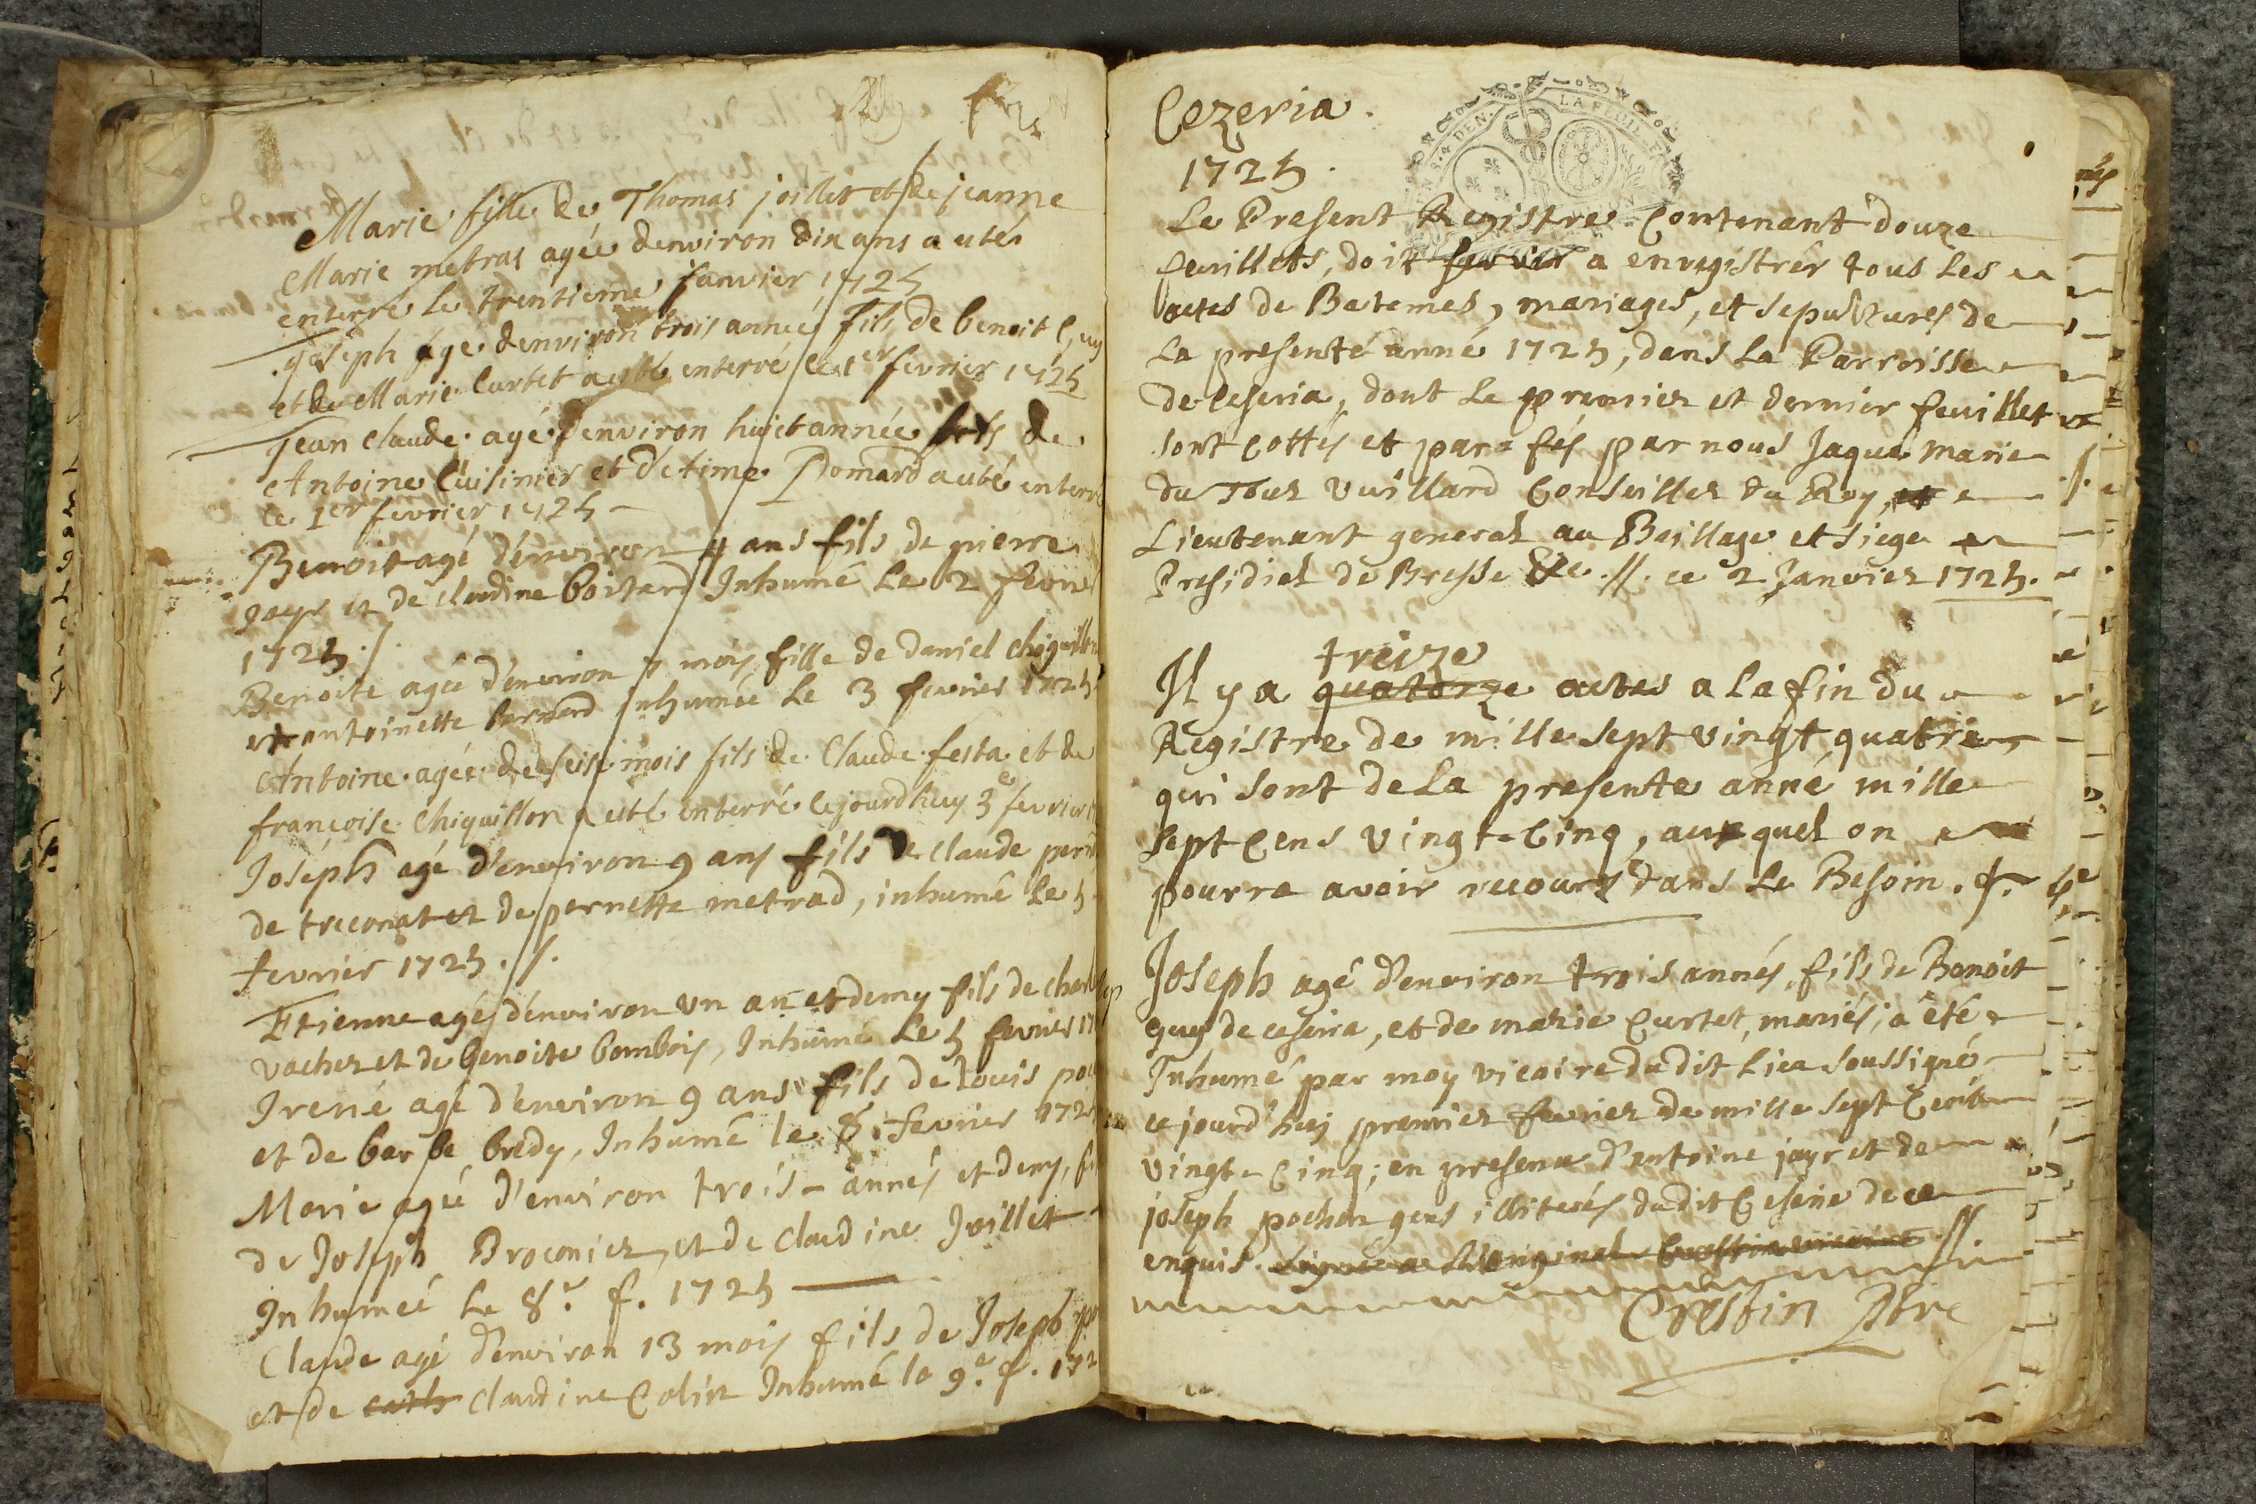 Marie fille de Thomas joillet et de jeanne
Marie metras agée denviron dix ans a uté
enterré le trentieme janvier 1725
joseph age denviron trois année fils de benoit Guy
et de Marie Curtet a uté enterré le 1er fevrier 1725
Jean claude agé denviron huict année fils de
Antoine Cuisinier et detime Pomard a uté enterré
le 1er fevrier 1725
Benoit agé d'environ 4 ans fils de pierre
jayr et de claudine boitard Inhumé Le 2 fevri
1725 ./.
Benoite agée d'environ 7 mois fille de daniel chiquill
et antoinette bernard inhumée Le 3 fevrier 1725
Antoine agée de seise mois fils de Claude festa et de
françoise Chiquillon a uté enterré cejourdhuy 3e fevrier
Joseph agé d'environ 9 ans fils de claude
de treconat et de pernette metrad, inhumé le 5
fevrier 1725 ./.
Etienne agé d'environ un an et demy fils de
vacher et de benoite bombois, Inhumé Le 5 fevrier
Irené agé d'environ 9 ans fils de Louis
et de barbe bredy, Inhumé le 8. fevrier 1725
Marie ageé d'environ trois - annés et demy,
de Joseph Broconier, et de claudine Joillet
Inhumeé Le 8e. f. 1725
Claude agé d'environ 13 mois fils de Joseph
et de cath claudine Colin Inhumé le 9e. f. 172
Cezeria.
1725.
LA FEUIL
DEN.
Le Present Registre Contenant douze
feuillets, doit servir a enregistrer tous Les
actes de Batemes, mariages, et sepultures de
La presente anné 1725, dans La Parroisse
de Ceseria, dont Le premier et dernier feuillet
sont Cottés et parafés par nous Jaque marie
du Tour Vuillard Conseiller du Roy, et
Lieutenant general au Baillage et siege
Presidial de Bresse &c. //. ce 2 Janvier 1725.
treize
Il y a quatorze actes a la fin du
Registre de mille sept vingt quatre,
qui sont de La presente anné mille
sept Cens vingt-Cinq, auxquel on
pourra avoir recours dans Le Besoin. ./.
Joseph agé d'environ trois annés, fils de Benoit
guy de ceseria, et de marie Curtet, mariés; a êté
Inhumé par moy vicaire dudit Lieu soussigné
ce jourd'huy premier fevrier de mille sept Cent
vingt-Cinq; en presence d'antoine jayr et de
joseph pochon gens illiterés dudit Ceserie de ce
enquis. signé a L'original Crestin vicaire //.
Crestin Ptre